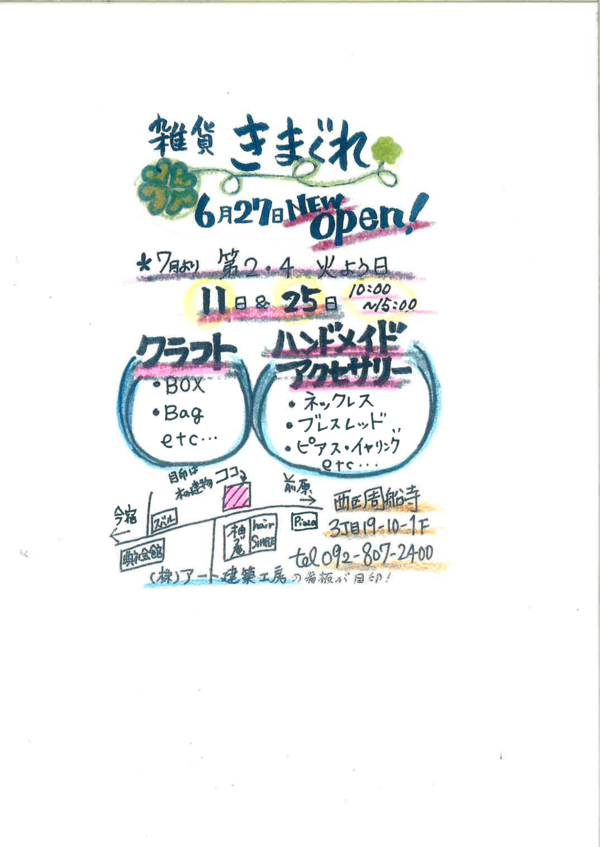 雑貨 きまぐれ
6月27日 NEW open!
*7月より 第2・4 火よう日
11日 & 25日 10:00 ~15:00
クラフト
・BOX
・Bag
etc…
ハンドメイド
アクセサリー
・ネックレス
・ブレスレッド
・ピアス・イヤリング
etc…
目印は
木の建物
ココ
前原
今宿
スバル
Pizza
柚庵
hair
SIMPLE
会館
西区周船寺
3丁目19-10-1F
tel 092-807-2400
(株)アート建築工房の看板が目印!